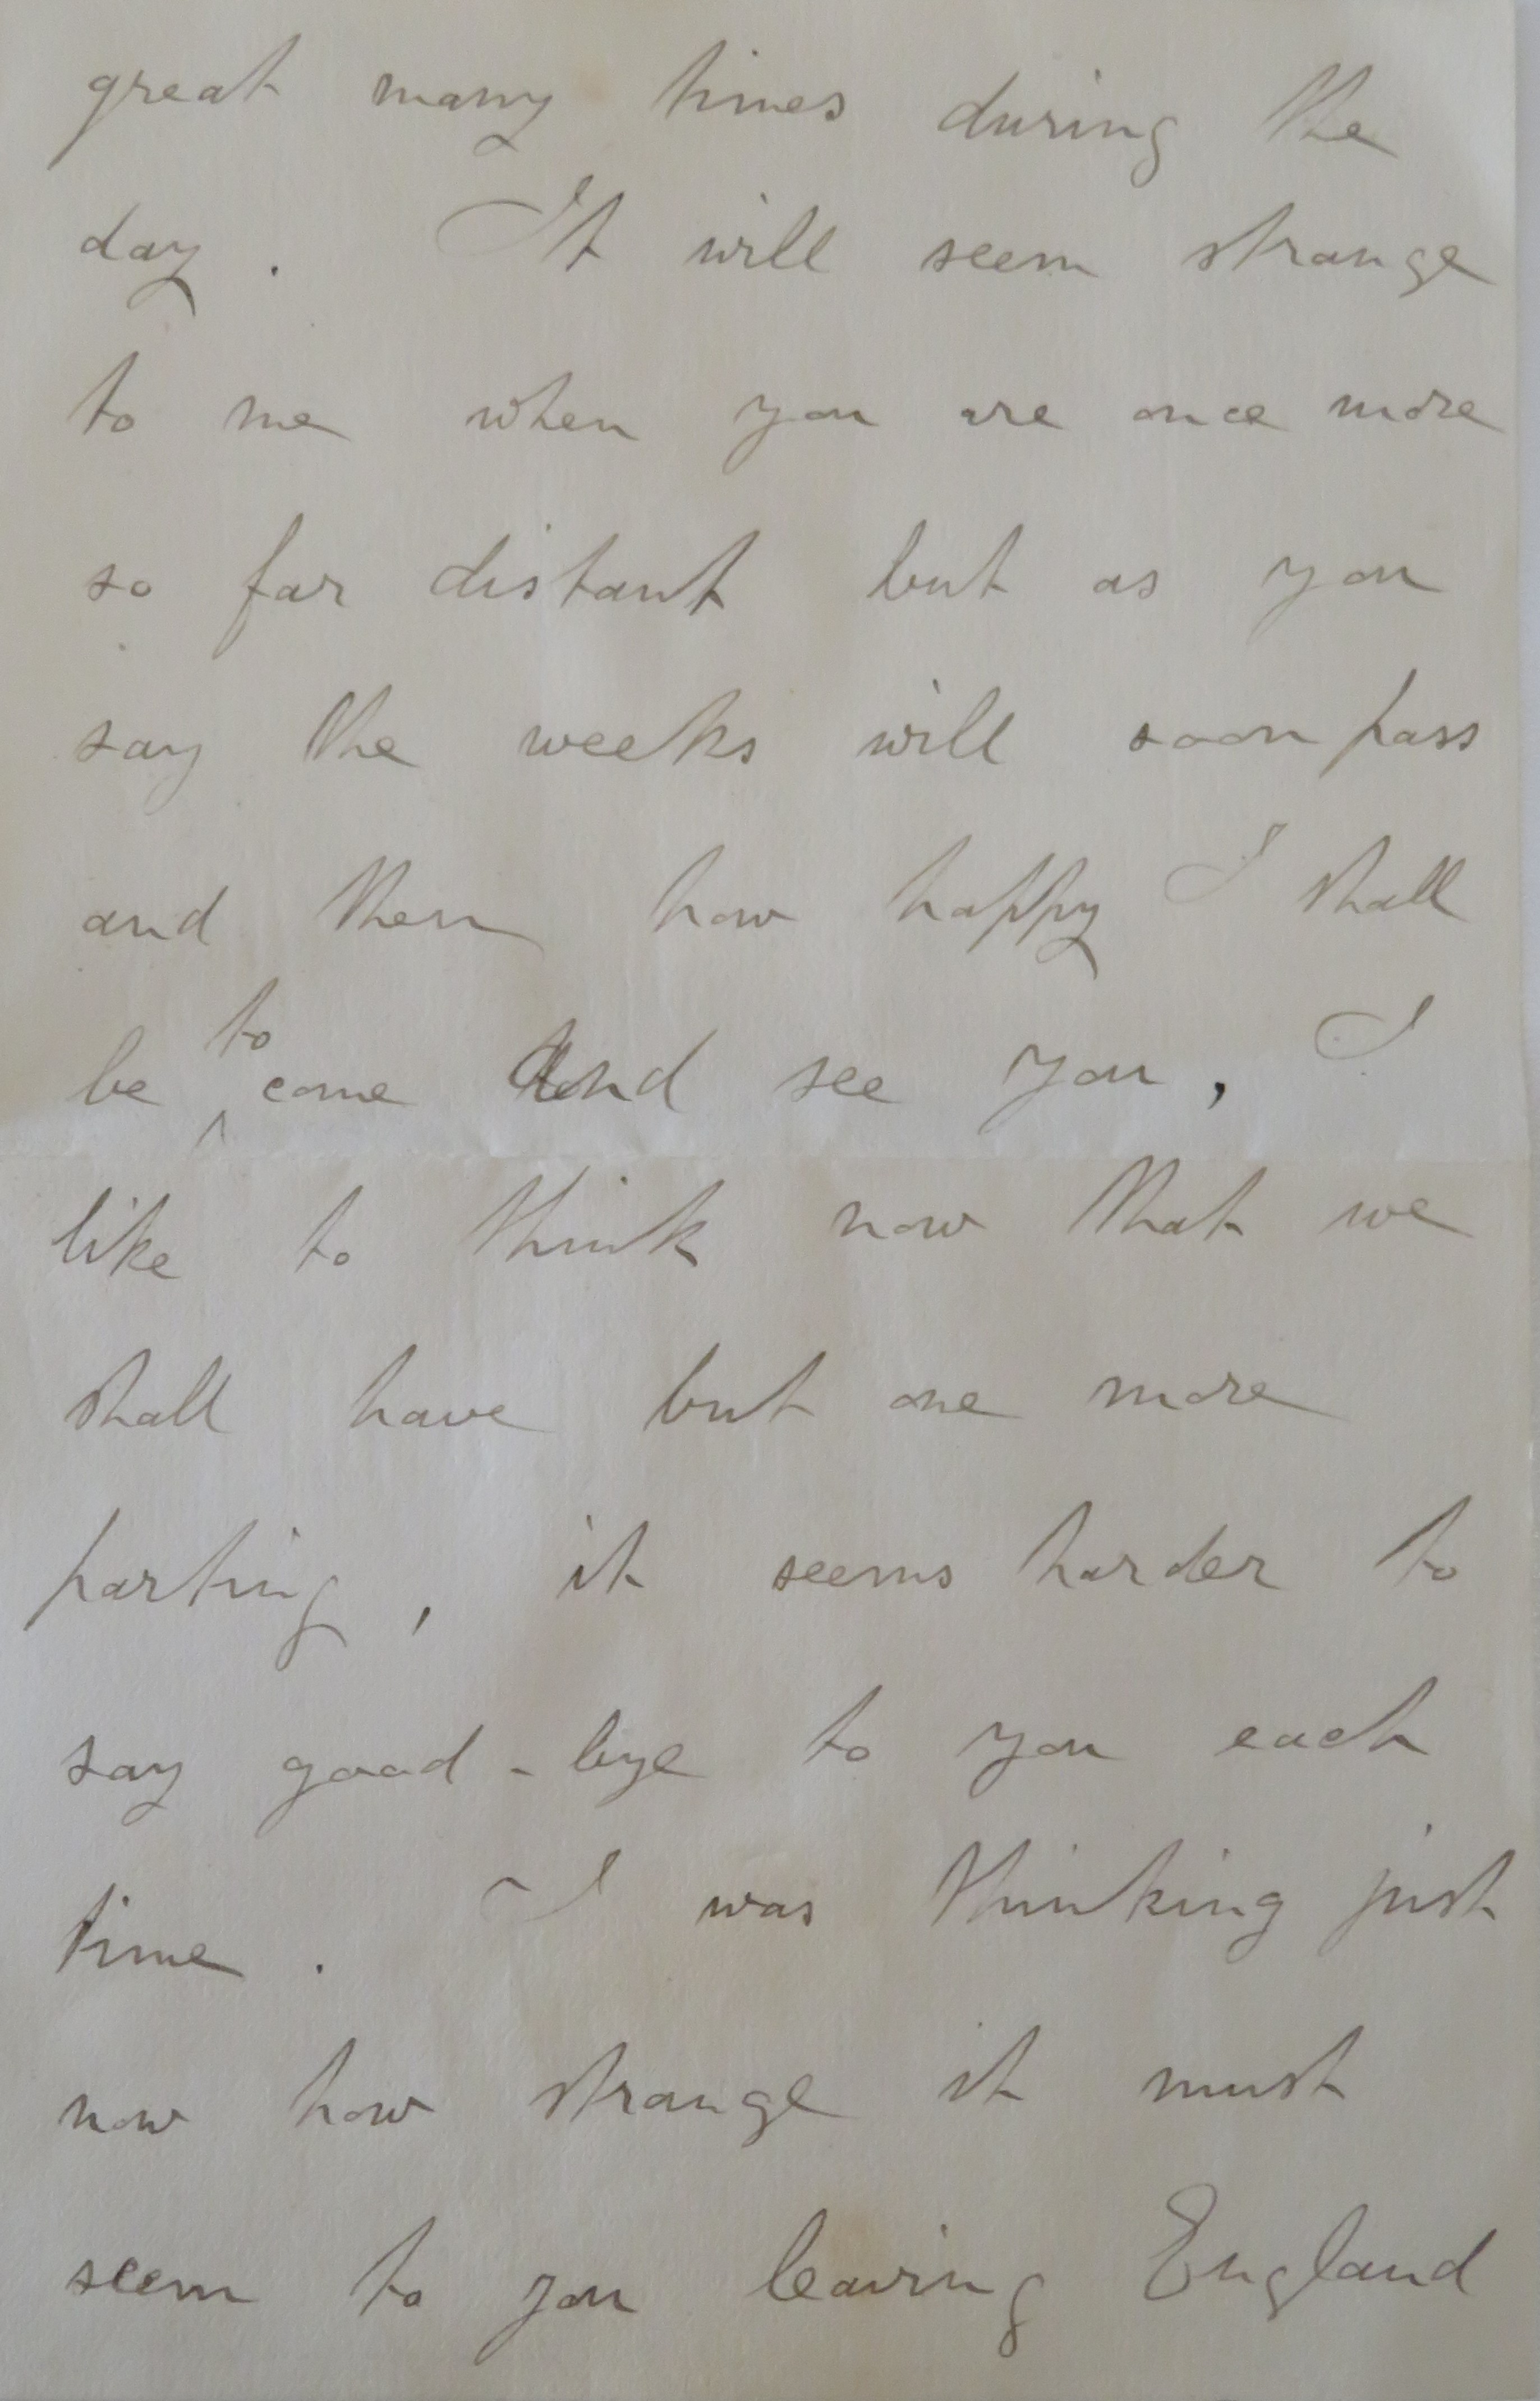 great many times during the
day. It will seem strange
to me when you are once more
so far distant but as you
say the weeks will soon pass
and then how happy I shall
be to come and see you, I
like to think now that we
shall have but one more
parting, it seems harder to
say good-bye to you each
time. I was thinking just
now how strange it must
seem to you leaving England